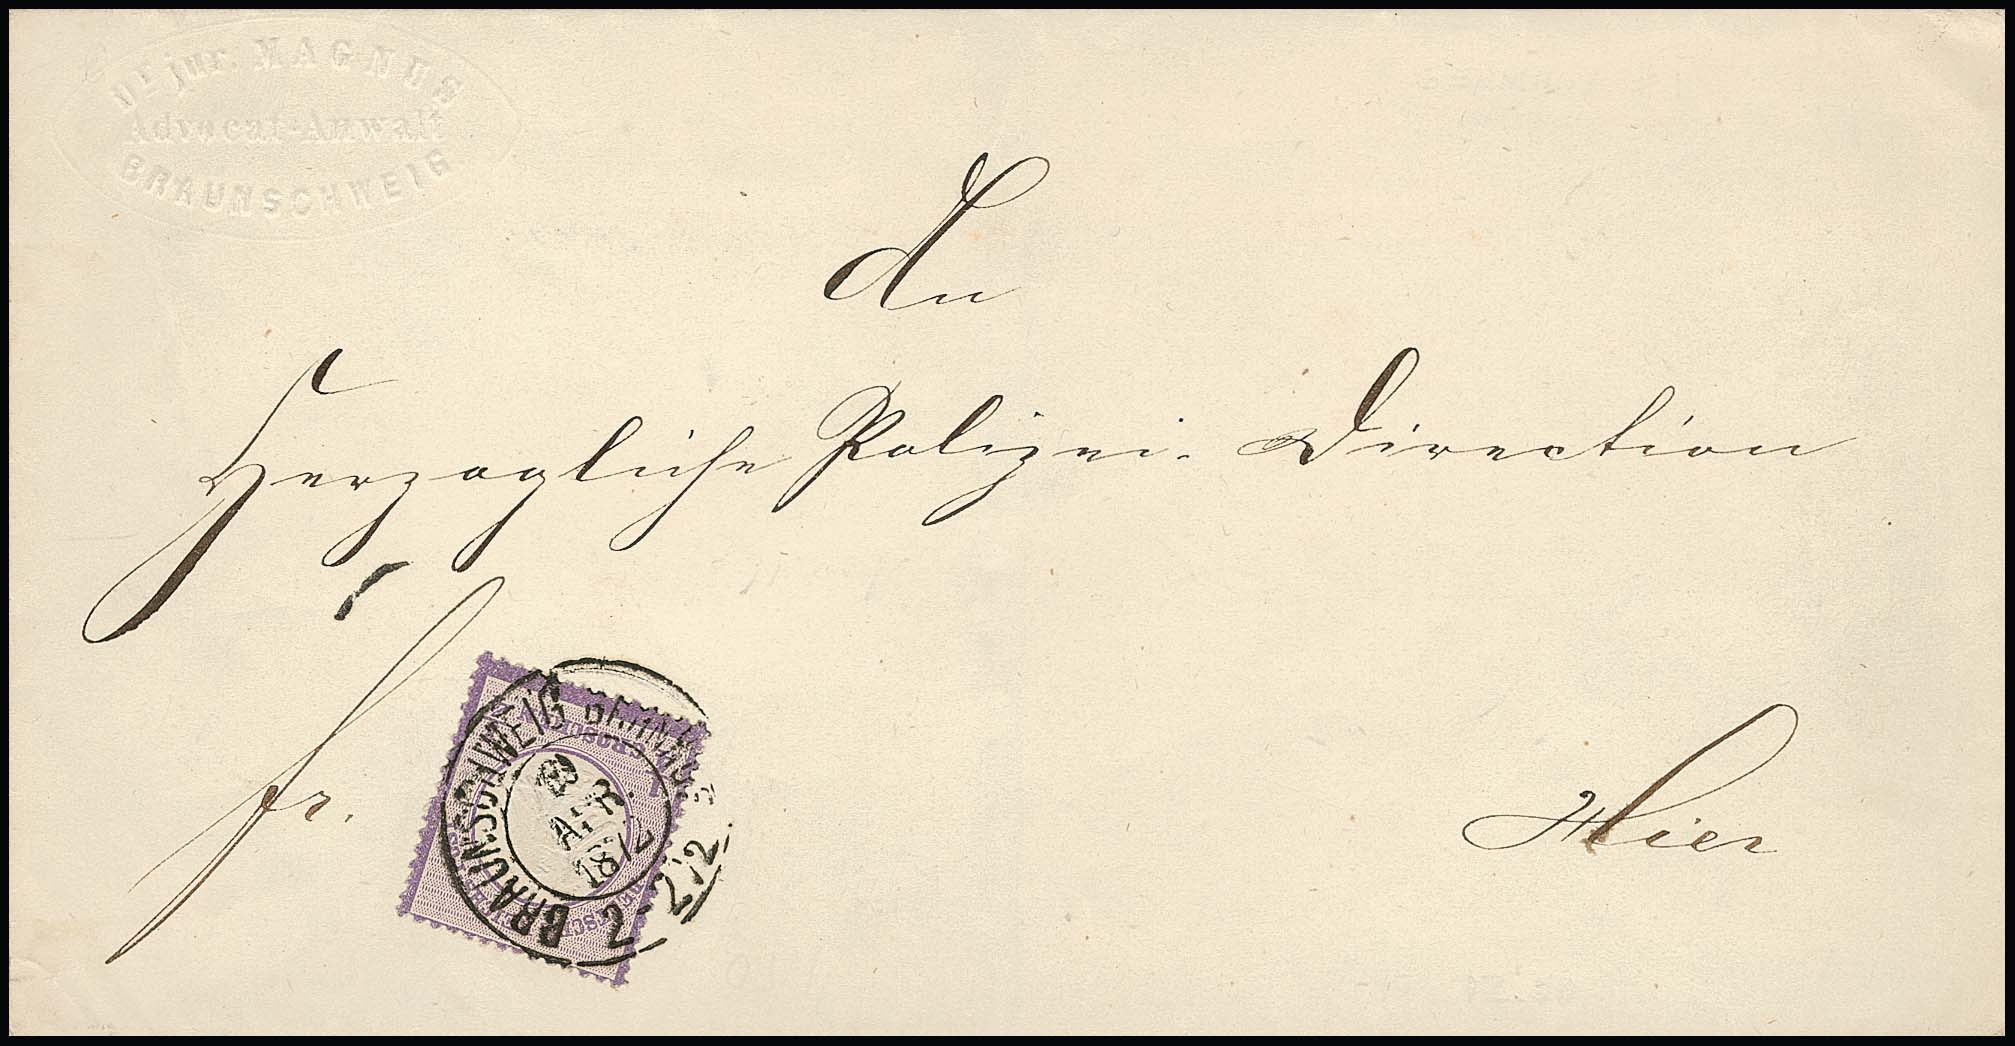 Dr jur. MAGNUS
Advocat-Anwalt
BRAUNSCHWEIG
An
Herzogliche Polizei-Direction
fr.
Hier
BRAUNSCHWEIG
APR.
1872
2-2½